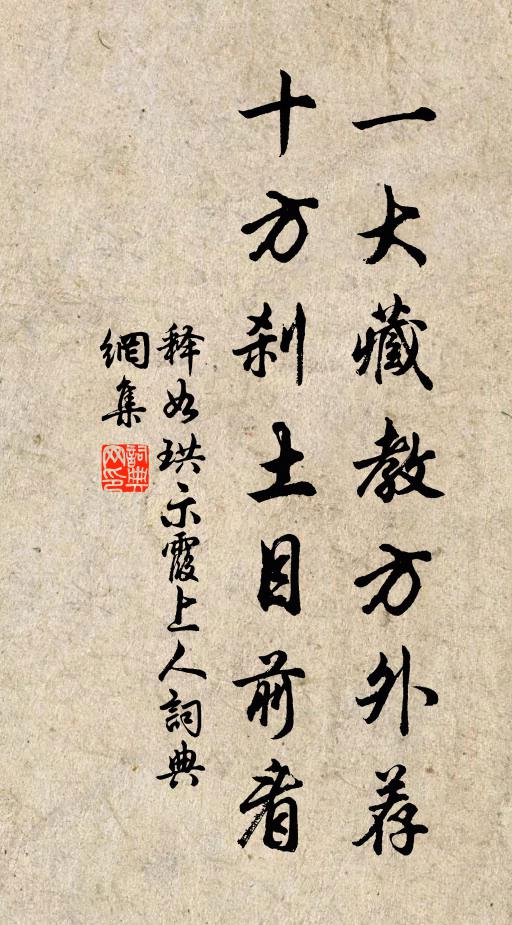 一大藏教方外荐
十方刹土目前看
释如珙示霞上人詞典
網集
詞典網印